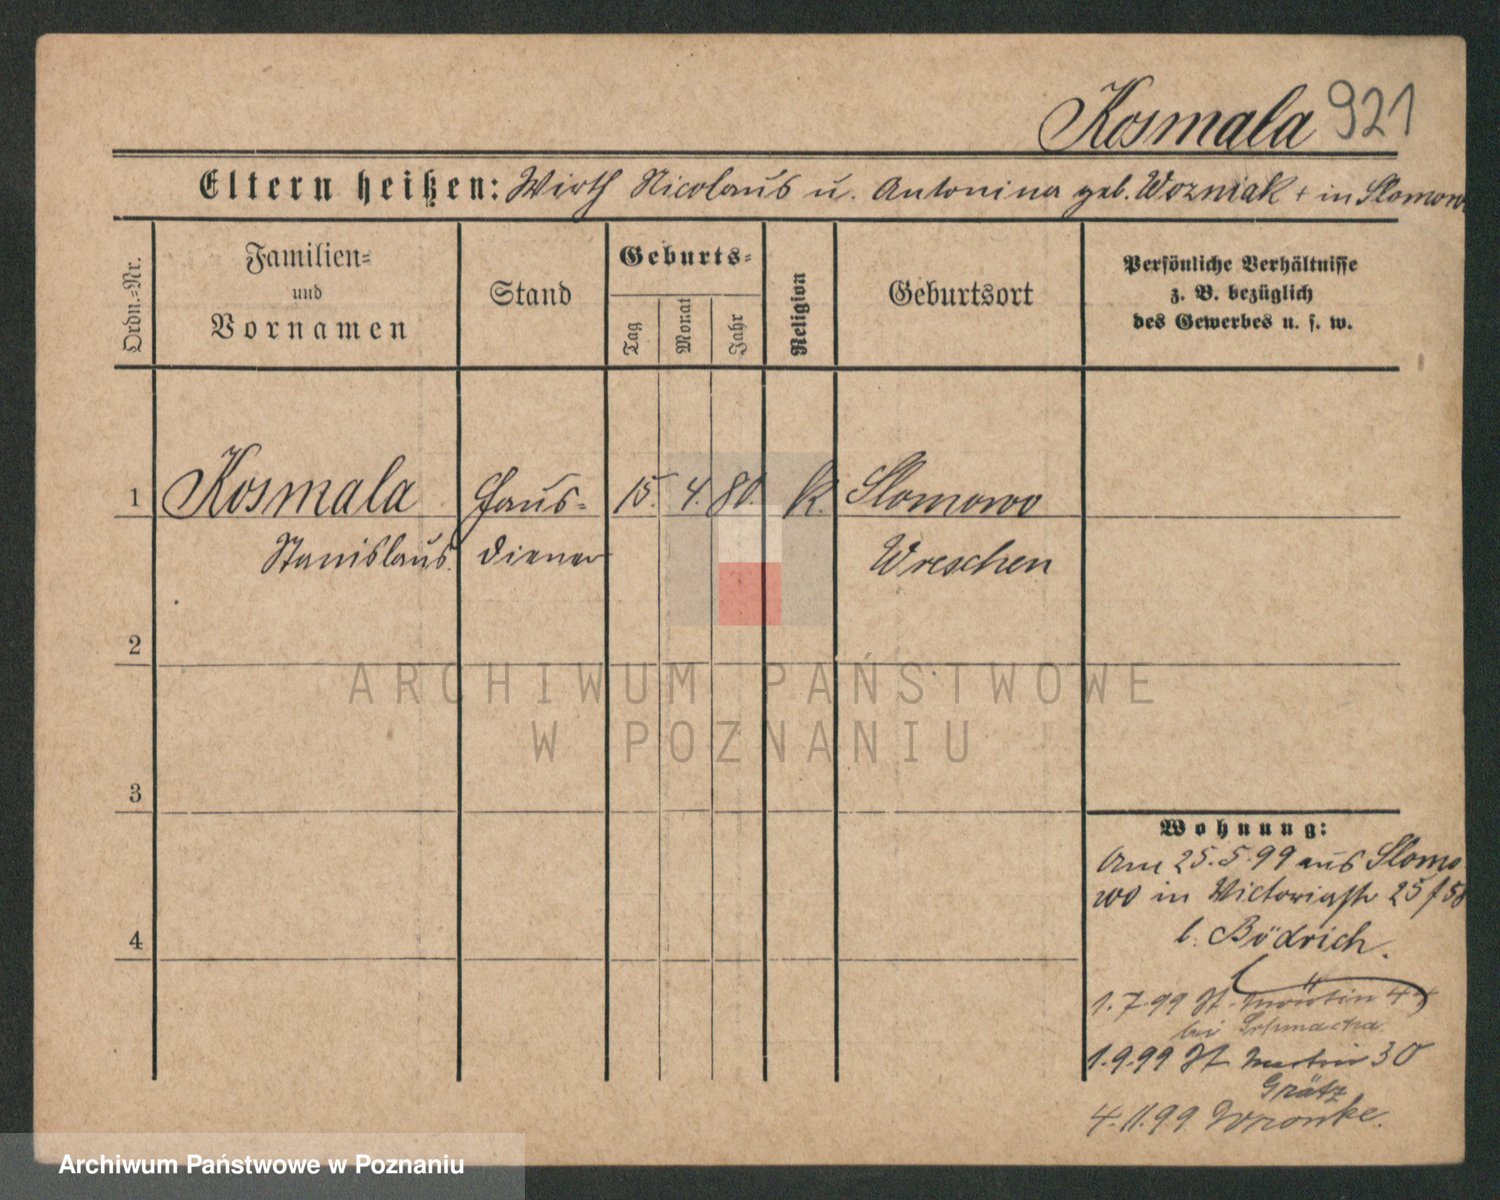 Kosmala 921
Eltern heißen: Wirth Nicolaus u. Antonina geb. Wozniak + in Slomowo
Ordn.=Nr.
Familien=
und
Vornamen
Stand
Geburts=
Tag
Monat
Jahr
Religion
Geburtsort
Persönliche Verhältnisse
z. B. bezüglich
des Gewerbes u. s. w.
1 Kosmala Haus= 15. 4. 80. k. Slomowo
Stanislaus diener Wreschen
2
3
4
Wohnung:
Am 25.5.99 aus Slomo
wo in Victoriastr 25
b. Bödrich.
1.7.99 St. Martin 44
bei
1.9.99 St Martin 30
Grätz
4.11.99 Wronke.
ARCHIWUM PAŃSTWOWE
W POZNANIU
Archiwum Państwowe w Poznaniu